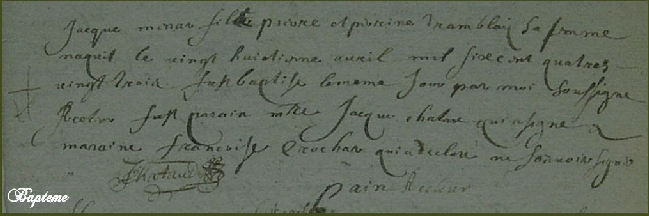 Jacque minar fils de pierre et perrine Tramblais sa femme
naquit le vingt huictieme avril mil six cent quatres
vingt trois fust baptise le meme jour par moi soussigne
Recteur fust parain mtre Jacque chalou qui a signe
maraine francoise Crochar qui a declare ne scavoir signer
pain Recteur
Bapteme